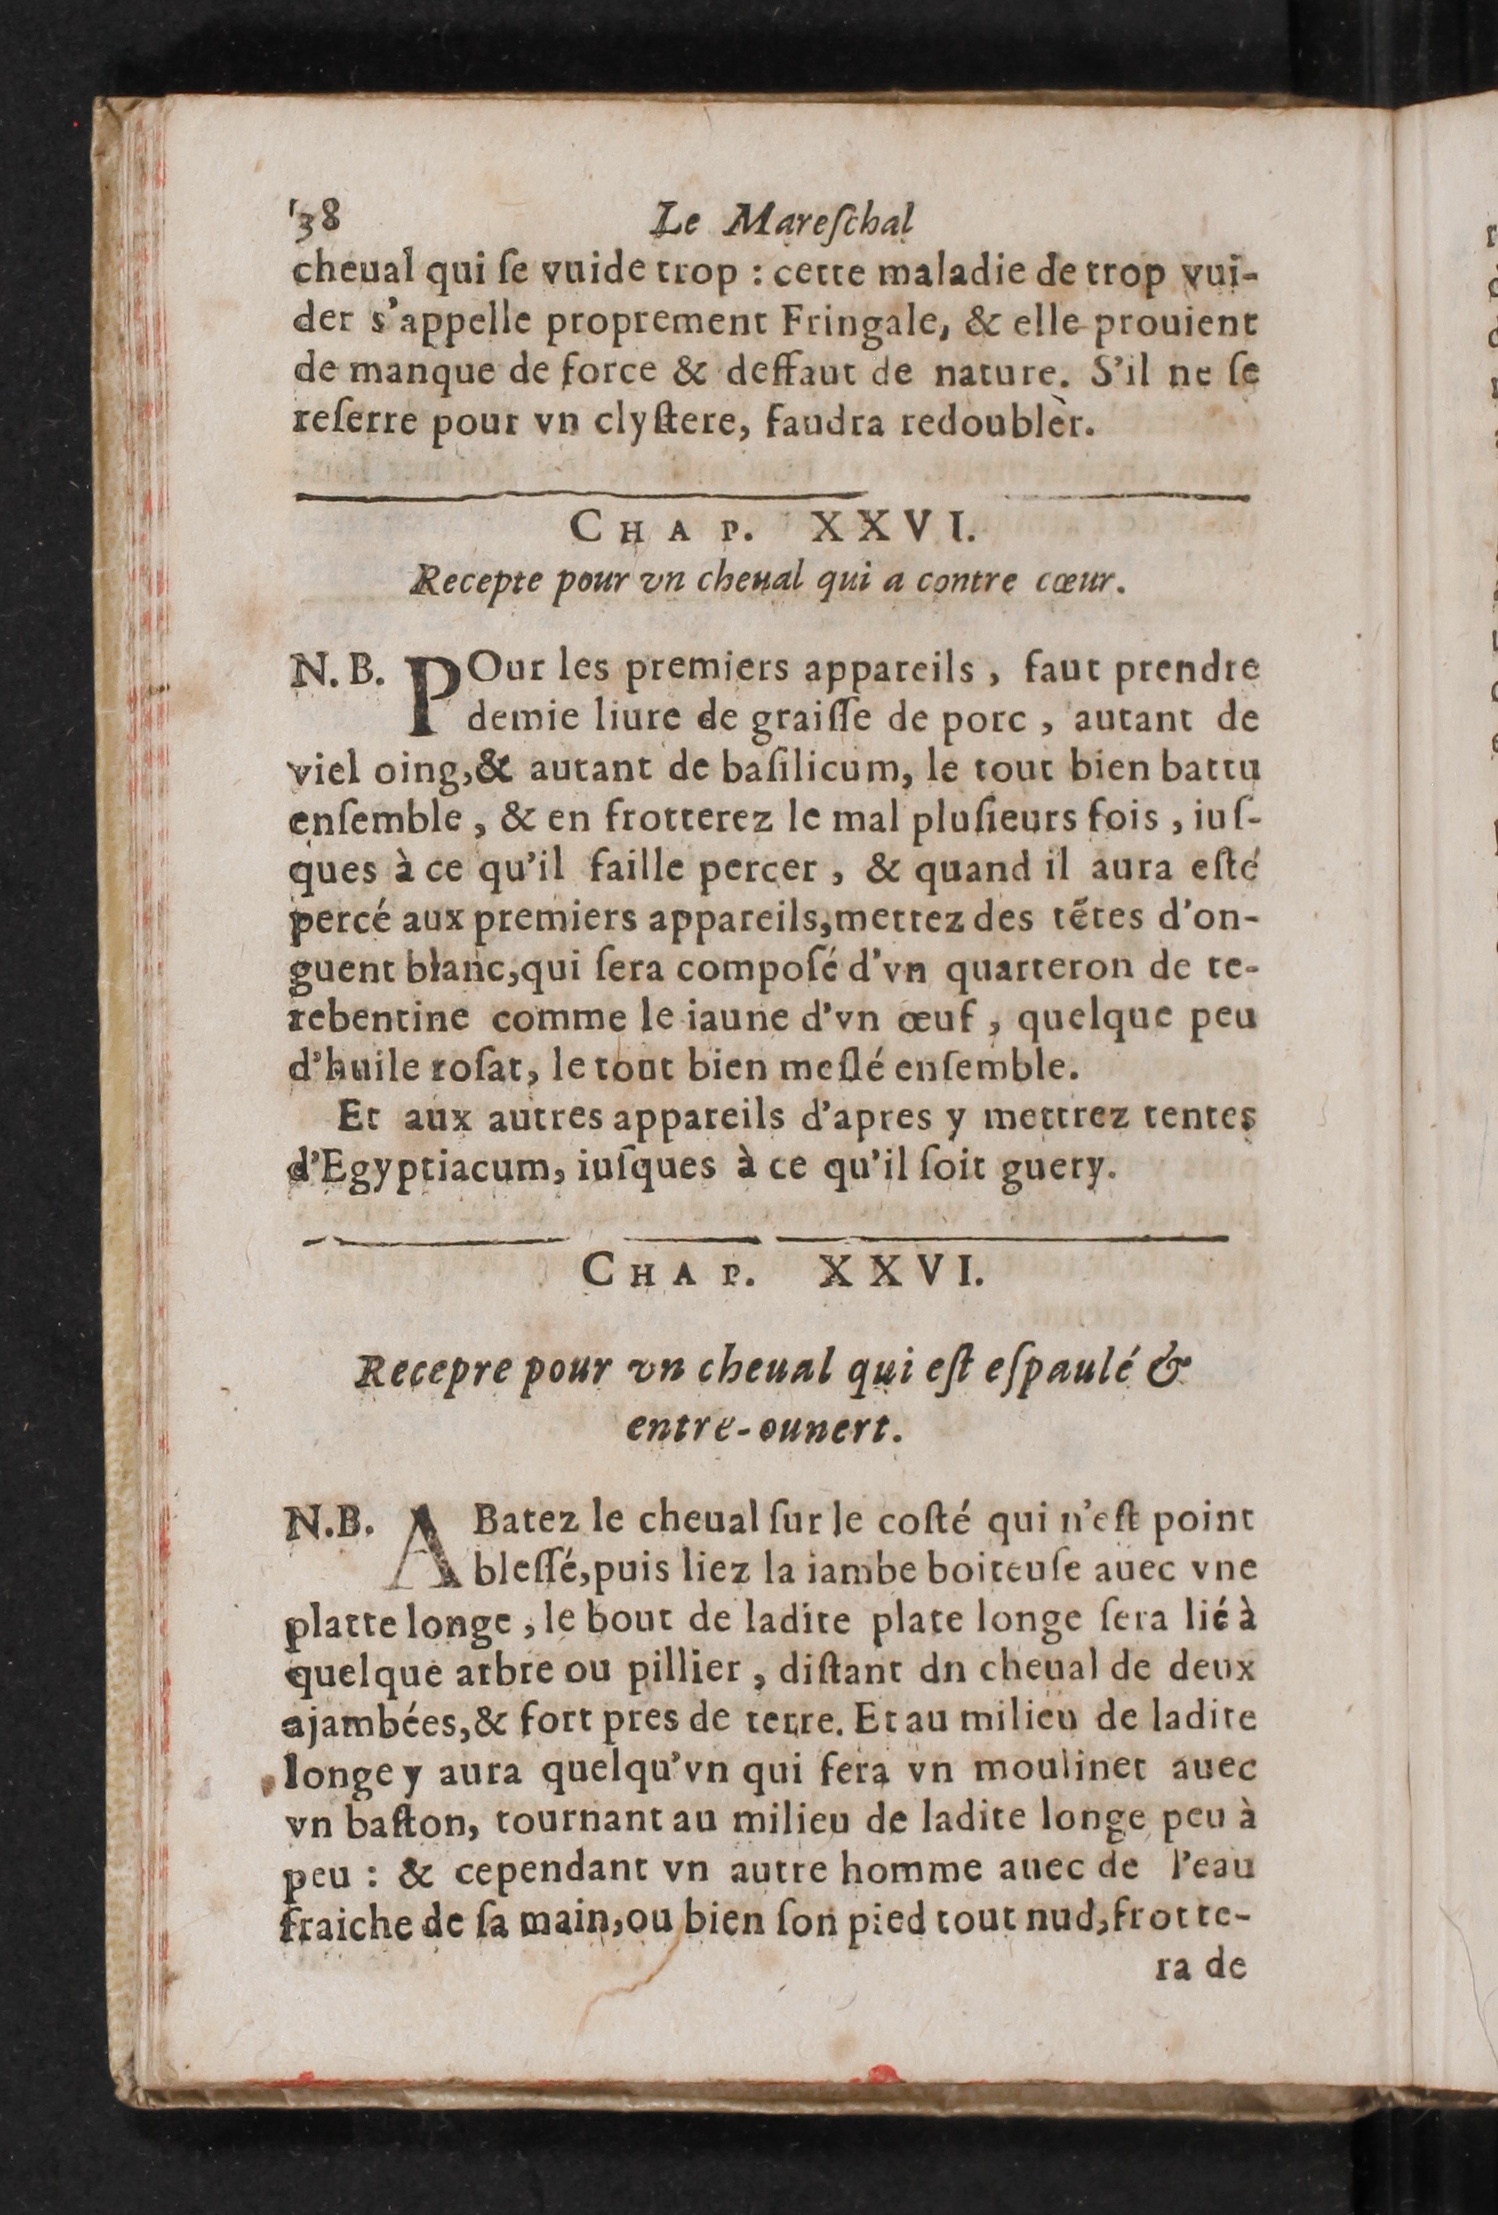 38 Le Mareſchal
cheual qui ſe vuide trop : cette maladie de trop vui-
der s'appelle proprement Fringale, & elle prouient
de manque de force & deffaut de nature. S'il ne ſe
reſerre pour vn clyſtere, faudra redoublèr.
CHAP. XXVI.
Recepte pour vn cheual qui a contre cœur.
N. B. POur les premiers appareils, faut prendre
demie liure de graiſſe de porc, autant de
viel oing,& autant de baſilicum, le tout bien battu
enſemble, & en frotterez le mal pluſieurs fois, iuſ-
ques à ce qu'il faille percer, & quand il aura eſté
percé aux premiers appareils,mettez des tétes d'on-
guent blanc,qui ſera compoſé d'vn quarteron de te-
rebentine comme le iaune d'vn œuf, quelque peu
d'huile roſat, le tout bien meſlé enſemble.
Et aux autres appareils d'apres y mettrez tentes
d'Egyptiacum, iuſques à ce qu'il ſoit guery.
CHAP. XXVI.
Recepre pour vn cheual qui eſt eſpaulé &
entre-ouuert.
N.B. ABatez le cheual ſur le coſté qui n'eſt point
bleſſé,puis liez la iambe boiteuſe auec vne
platte longe, le bout de ladite plate longe ſera lié à
quelque arbre ou pillier, diſtant dn cheual de deux
ajambées,& fort pres de terre. Et au milieu de ladite
longe y aura quelqu'vn qui fera vn moulinet auec
vn baſton, tournant au milieu de ladite longe peu à
peu : & cependant vn autre homme auec de l'eau
fraiche de ſa main,ou bien ſon pied tout nud,frotte-
ra de